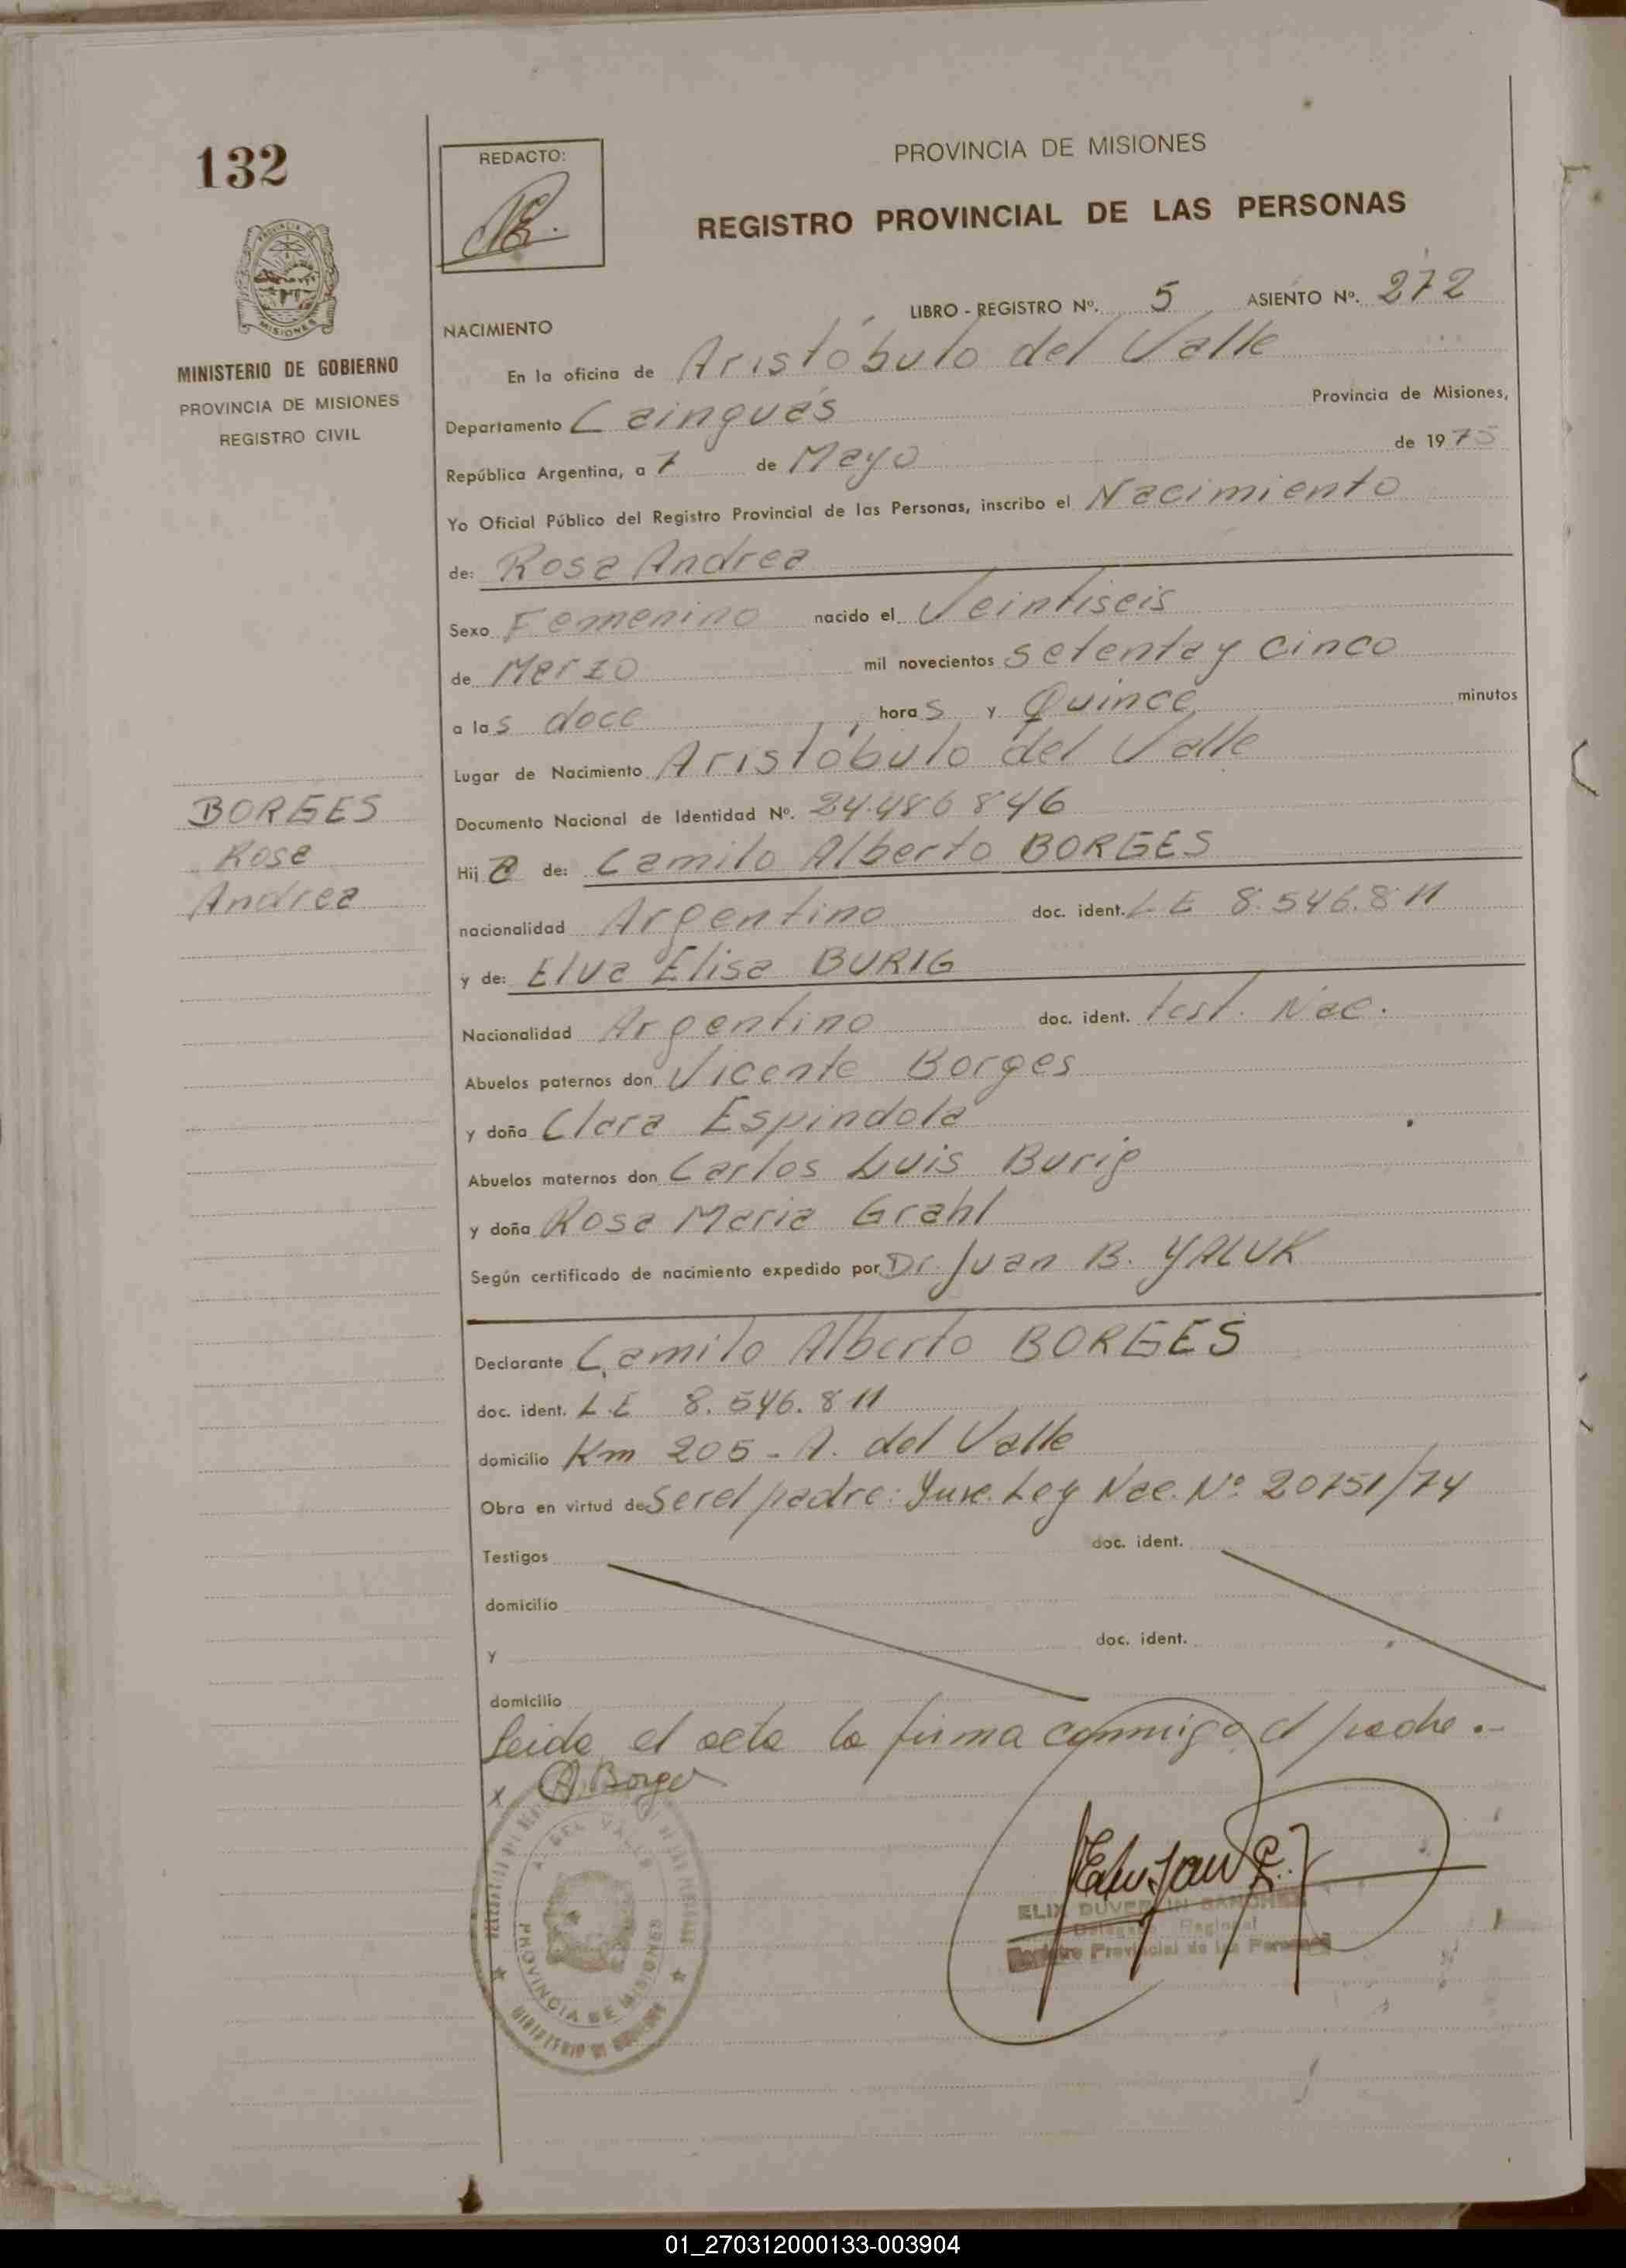 132
REDACTO:
PROVINCIA DE MISIONES
REGISTRO PROVINCIAL DE LAS PERSONAS
MISIONES
MINISTERIO DE GOBIERNO
PROVINCIA DE MISIONES
REGISTRO CIVIL
LIBRO - REGISTRO Nº. 5 ASIENTO Nº. 272
NACIMIENTO
En la oficina de Aristóbulo del Valle
Departamento Cainguás Provincia de Misiones,
República Argentina, a 7 de Mayo de 1975
Yo Oficial Público del Registro Provincial de las Personas, inscribo el Nacimiento
de: Rosa Andrea
Sexo Femenino nacido el Veintiseis
de Marzo mil novecientos setenta y cinco
a las doce horas y Quince minutos
Lugar de Nacimiento Aristóbulo del Valle
Documento Nacional de Identidad Nº. 24.486846
BORGES
Rosa
Andrea
Hija de: Camilo Alberto BORGES
nacionalidad Argentino doc. ident. L E 8.546.811
y de: Elva Elisa BURIG
Nacionalidad Argentino doc. ident. test. Nac.
Abuelos paternos don Vicente Borges
y doña Clara Espindola
Abuelos maternos don Carlos Luis Burig
y doña Rosa Maria Grahl
Según certificado de nacimiento expedido por Dr. Juan B. YALUK
Declarante Camilo Alberto BORGES
doc. ident. L.E 8.546.811
domicilio Km 205 - A. del Valle
Obra en virtud de Ser el padre: Ley Nac. Nº 20751/74
Testigos doc. ident.
domicilio
y doc. ident.
domicilio
Leida el acta la firma conmigo el padre .-
x A. Borges
A. DEL VALLE
PROVINCIA DE MISIONES
ELIX DUVERLIN SANCHEZ
Delegado Regional
Registro Provincial de las Personas
01_270312000133-003904